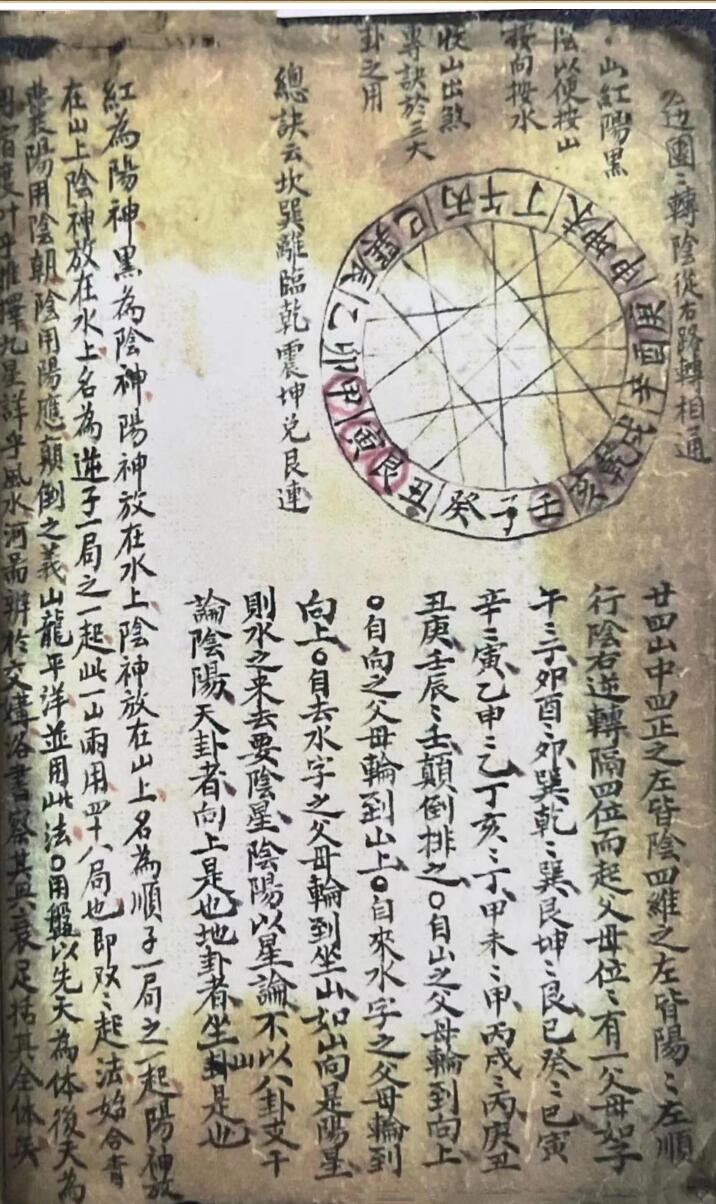 边團〻轉陰從右路轉相通
山紅陽黑
陰以便按山
按向按水
收山出煞
專訣於三大
卦之用
總訣云坎巽離臨乾震坤兌艮連
丙午丁未坤申庚酉辛戌乾亥壬子癸丑艮寅甲卯乙辰巽巳
廿四山中四正之左皆陰四維之左皆陽〻左順
行陰右逆轉隔四位而起父母位〻有一父母如子
午〻子卯酉〻卯巽乾〻巽艮坤〻艮巳癸〻巳寅
辛〻寅乙申〻乙丁亥〻丁甲未〻甲丙戌〻丙庚丑
丑庚壬辰〻壬顛倒排之○自山之父母輪到向上
○自向之父母輪到山上○自來水字之父母輪到
向上○自去水字之父母輪到坐山如山向是陽星
則水之来去要陰星陰陽以星論不以八卦支干
論陰陽天卦者向上是也地卦者坐山是也
紅為陽神黑為陰神陽神放在水上陰神放在山上名為順子一局之一起陽神放
在山上陰神放在水上名為逆子一局之一起此一山兩用四十八局也即双〻起法始合青
囊陽用陰朝陰用陽應顛倒之義山龍平洋並用此法○用盤以先天為體後天為
用宿度叶乎推擇九星詳乎風水河啚辨於交媾洛書察其興衰足括其全体矣